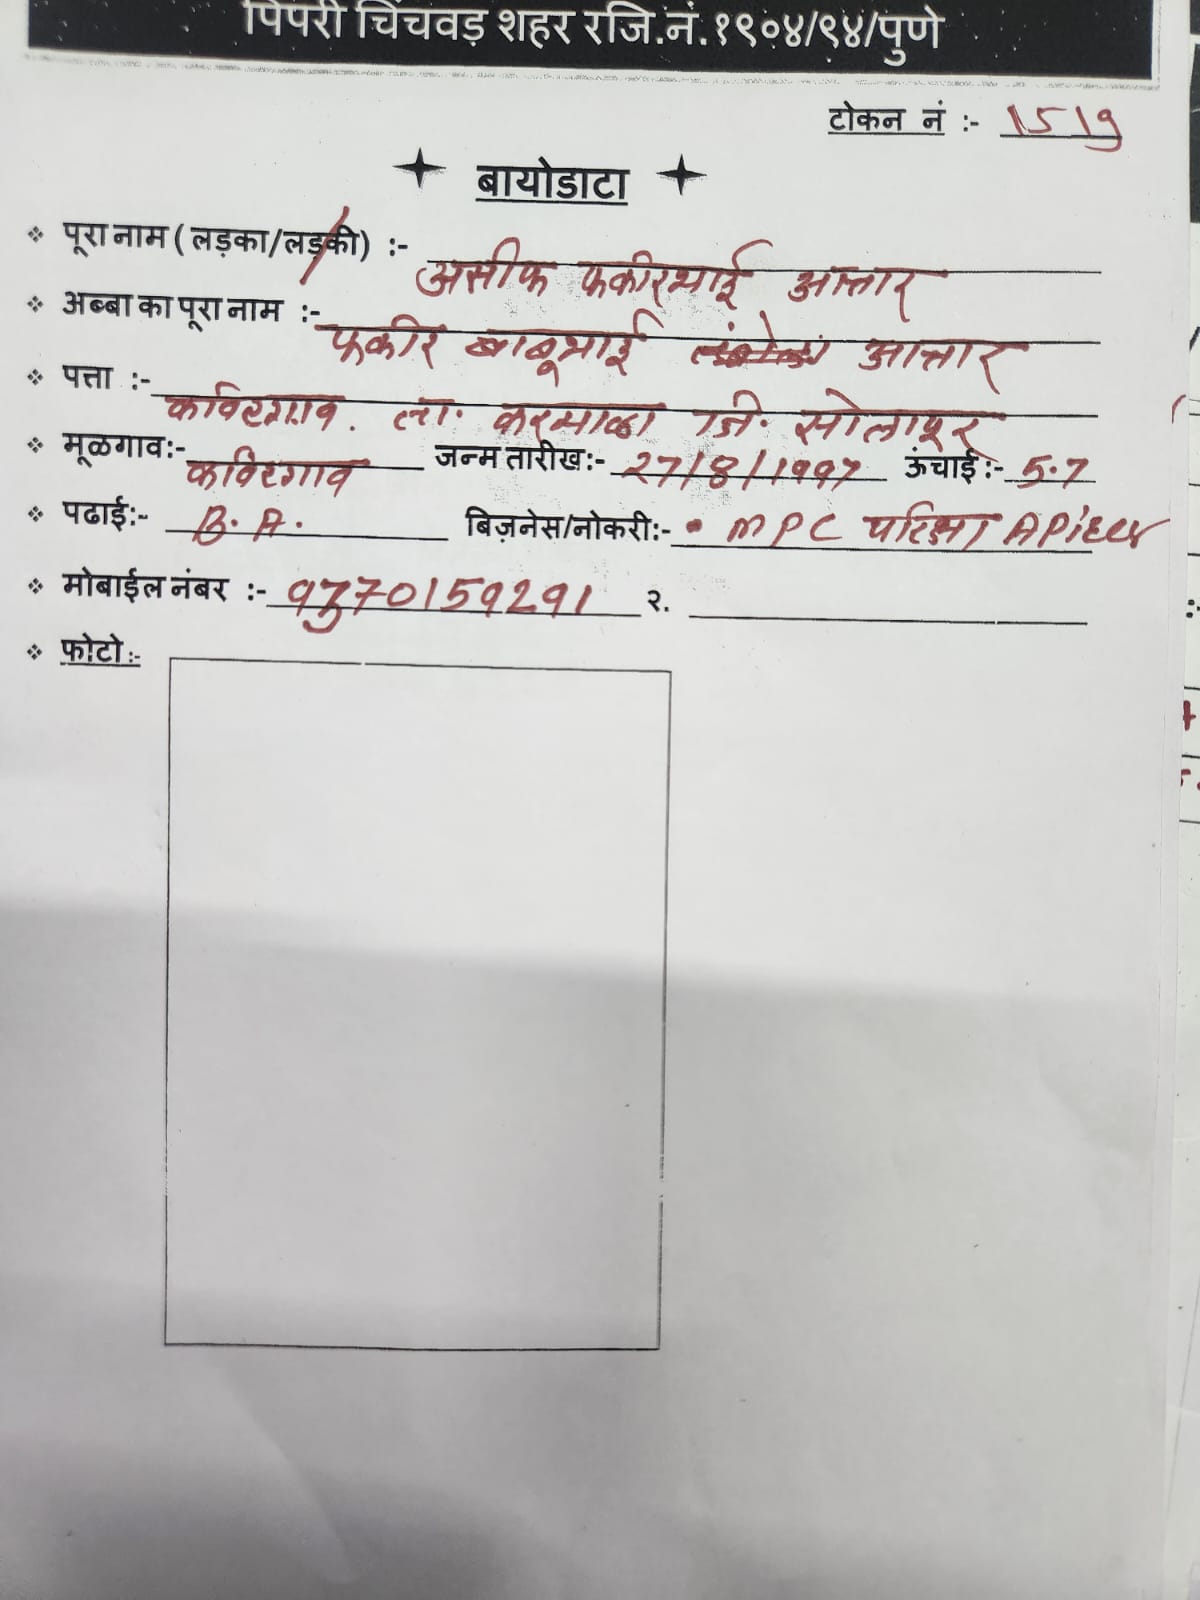 पिंपरी चिंचवड़ शहर रजि.नं.१९०४/९४/पुणे
टोकन नं :- 1519
बायोडाटा
पूरा नाम ( लड़का/लड़की) :- असीफ फकीरभाई आत्तार
अब्बा का पूरा नाम :- फकीर बाबूभाई आत्तार
पत्ता :- कविटगाव. ता. करमाळा जि. सोलापूर
मूळगाव:- कविटगाव जन्म तारीख:- 27/8/1997 ऊंचाई:- 5.7
पढाई:- B.A. बिज़नेस/नोकरी:- MPC परिक्षा
मोबाईल नंबर :- २.
फोटो:-